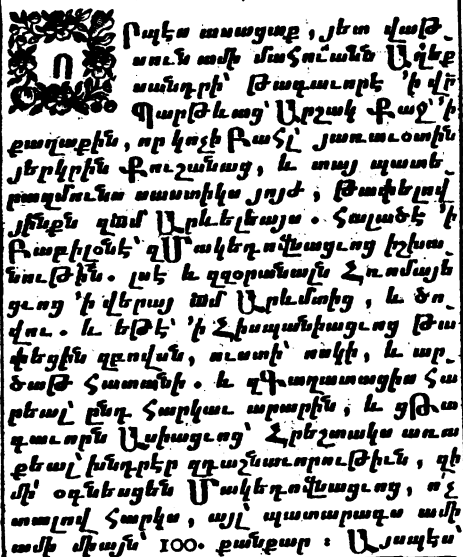 Որպէս ասացաք, յետ վաթ֊
սուն ամի մահուանն Աղեք
սանդրի՝ թագաւորէ ՚ի վր̃
Պարթևաց՝ Արշակ Քաջ՝ ՚ի
քաղաքին, որ կոչի Բահլ՝ յառաւօտին
յերկրին Քուշանաց, և տայ պատե֊
րազմունս սաստիկս յոյժ, թափելով
յինքն զա̃մ Արևելեայս. հալածէ ՚ի
Բաբիլօնէ՝ զՄակեդովնացւոց իշխա֊
նութին. լսէ և զզօրանալն Հռոմայե
ցւոց ՚ի վերայ ա̃մ Արևմտից, և ծո֊
վու. և եթէ՝ ՚ի Հիսպանիացւոց թա
փեցին զբովսն, ուստի՝ ոսկի, և ար֊
ծաթ հատանի. և զԳաղատացիս հա
րեալ՝ ընդ հարկաւ արարին, և ցթա
գաւորն Ասիացւոց՝ Հրեշտակս առա
քեալ՝ խնդրէր զդաշնաւորութիւն, զի
մի՛ օգնեսցեն Մակեդովնացւոց, ո՛չ
տալով հարկս, այլ՝ պատարագս ամի
ամի միայն՝ 100. քանքար։ Այսպէս՝